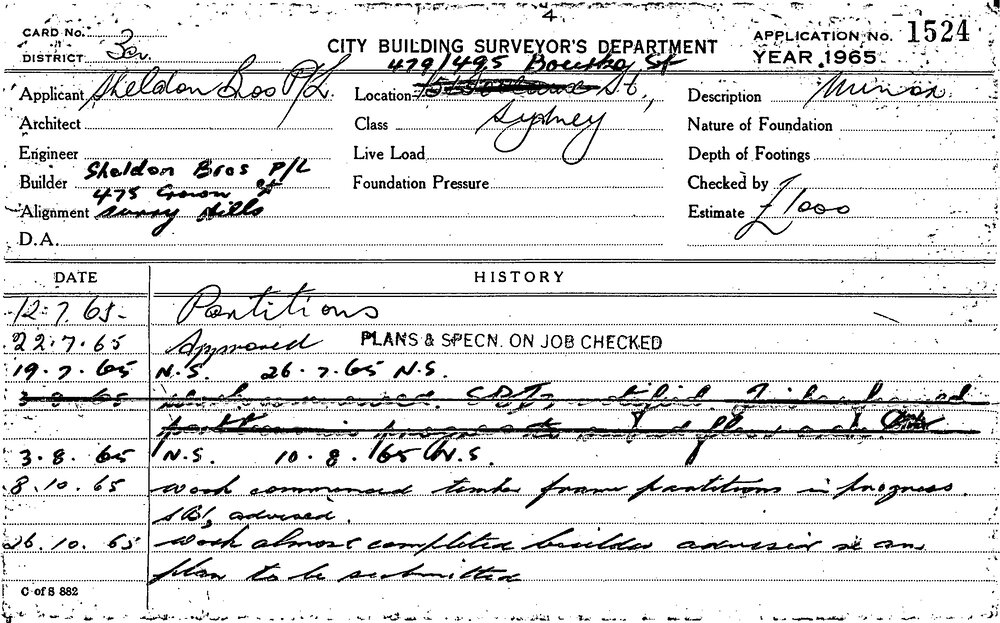 4
CARD No.
DISTRICT 3en.
CITY BUILDING SURVEYOR'S DEPARTMENT
APPLICATION No. 1524
YEAR 1965
479/495 Bourke St
Applicant Sheldon Bros P/L
Location St,
Description Minor
Architect
Class Sydney
Nature of Foundation
Engineer
Live Load
Depth of Footings
Builder Sheldon Bros P/L
475 Crown St
Foundation Pressure
Checked by
Alignment Surry Hills
Estimate £1000
D.A.
DATE HISTORY
12.7.65 Partitions
22.7.65 Approved PLANS & SPECN. ON JOB CHECKED
19.7.65 N.S. 26.7.65 N.S.
3.8.65 notified
partitions in progress
3.8.65 N.S. 10.8.65 N.S.
8.10.65 Work commenced timber frame partitions in progress.
advised.
26.10.65 Work almost completed builder advised
plan to be submitted
C of S 882